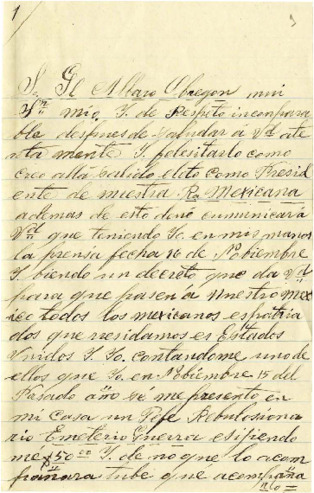 1
Sr Gl Alvaro Obregon mui
Sr mio, Y. de Respeto incompara
ble despues de saludar a Vd ate
nta mente Y. felisitarlo como
creo alla salido eleto como Presid
ente de nuestra Ra Mexicana
ademas de esto devo cumunicar á
Vd que teniendo Yo. en mis manos
la prensa fecha 10 de Nobiembre
Y biendo un decreto que da Vd
para que pasen á Nuestro Mex
ico todos los mexicanos espatria
dos que rresidamos es Estados
Vnidos Y Yo. contandome uno de
ellos que Yo. en Nobiembre 15 del
Pasado año sé me presento en
mi Casa un Jefe Rebulosiona
rio Emeterio Guerra esijiendo
me $50.00 Y. de no que lo acom
pañara tube que acompaña